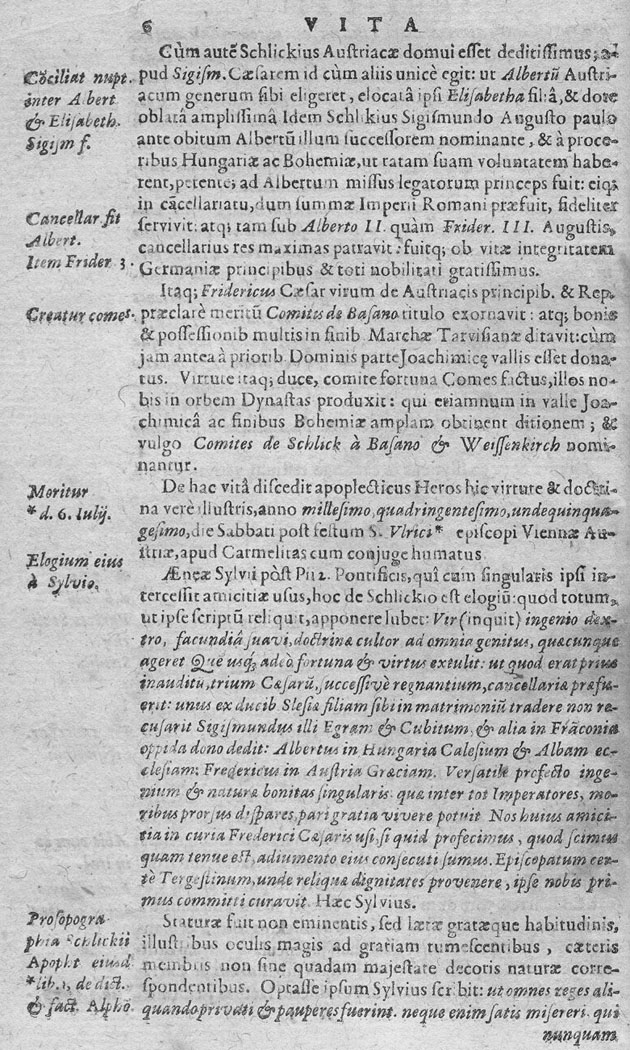 6 VITA
Cùm autē Schlickius Austriacæ domui esset deditissimus; a-
pud Sigism. Cæsarem id cùm aliis unicè egit: ut Albertū Austri-
acum generum sibi eligeret, elocatâ ipsi Elisabetha filiâ, & dote
oblatâ amplissimâ. Idem Schlikius Sigismundo Augusto paulo
ante obitum Albertū illum successorem nominante, & à proce-
ribus Hungariæ ac Bohemiæ, ut ratam suam voluntatem habe-
rent, petente; ad Albertum missus legatorum princeps fuit: eiq;
in cācellariatu, dum summæ Imperii Romani præfuit, fideliter
servivit: atq; tam sub Alberto II. quàm Frider. III. Augustis,
cancellarius res maximas patravit: fuitq; ob vitæ integritatem
Germaniæ principibus & toti nobilitati gratissimus.
Itaq; Fridericus Cæsar virum de Austriacis principib. & Rep.
præclarè meritū Comitis de Basano titulo exornavit: atq; bonis
& possessionib multis in finib Marchæ Tarvisianæ ditavit: cùm
jam antea à priorib Dominis parte Joachimicę vallis esset dona-
tus. Virtute itaq; duce, comite fortuna Comes factus, illos no-
bis in orbem Dynastas produxit: qui etiamnum in valle Joa-
chimicâ ac finibus Bohemiæ amplam obtinent ditionem; &
vulgo Comites de Schlick à Basano & Weissenkirch nomi-
nantur.
De hac vitâ discedit apoplecticus Heros hic virtute & doctri-
na verè illustris, anno millesimo, quadringentesimo, undequinqua-
gesimo, die Sabbati post festum S. Vlrici* episcopi Viennæ Au-
striæ, apud Carmelitas cum conjuge humatus.
Æneæ Sylvii pòst Pii 2. Pontificis, quî cum singularis ipsi in-
tercessit amicitiæ usus, hoc de Schlickio est elogiū: quod totum,
ut ipse scriptū reliquit, apponere lubet: Vir (inquit) ingenio dex-
tro, facundiâ suavi, doctrinæ cultor ad omnia genitus, quæcunque
ageret Quē usq; adeò fortuna & virtus extulit: ut quod erat prius
inauditū, trium Cæsarū, successivè regnantium, cancellariæ præfu-
erit: unus ex ducib Slesiæ filiam sibi in matrimoniū tradere non re-
cusarit Sigismundus illi Egram & Cubitum, & alia in Frāconia
oppida dono dedit: Albertus in Hungaria Calesium & Albam ec-
clesiam: Fredericus in Austria Græciam. Versatile profecto inge-
nium & naturæ bonitas singularis quæ inter tot Imperatores, mo-
ribus prorsus dispares, pari gratia vivere potuit Nos huius amici-
tia in curia Frederici Cæsaris usi, si quid profecimus, quod scimus
quam tenue est, adiumento eius consecuti sumus. Episcopatum cer-
tè Tergestinum, unde reliquæ dignitates provenere, ipse nobis pri-
mus committi curavit. Hæc Sylvius.
Staturæ fuit non eminentis, sed lætæ gratæque habitudinis,
illustribus oculis magis ad gratiam tumescentibus, cæteris
membris non sine quadam majestate decoris naturæ corre-
spondentibus. Optasse ipsum Sylvius scribit: ut omnes reges ali-
quando privati & pauperes fuerint. neque enim satis misereri qui
nunquam
Cōciliat nupt.
inter Albert
& Elisabeth.
Sigism f.
Cancellar. fit
Albert.
Item Frider 3.
Creatur comes.
Moritur
* d. 6. Iulij.
Elogium eius
à Sylvio.
Prosopogra-
phia Schlickii
Apopht eiusd
* lib. 1, de dict.
& fact. Alphō.